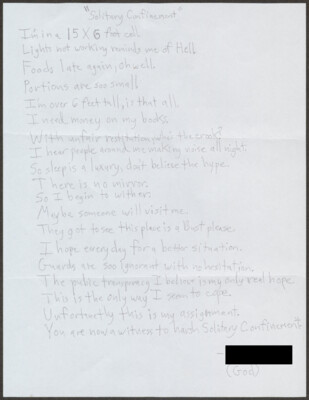 "Solitary Confinement"
I'm in a 15 X 6 foot cell.
Lights not working reminds me of Hell.
Foods late again, oh well.
Portions are soo small
I'm over 6 feet tall, is that all.
I need money on my books.
With unfair restitution who's the crook?
I hear people around me making noise all night.
So sleep is a luxury, don't believe the hype.
There is no mirror.
So I begin to wither.
Maybe someone will visit me.
They got to see this place is a Bust please.
I hope everyday for a better situation.
Guards are soo ignorant with no hesitation.
The public transparency I believe is my only real hope.
This is the only way I seem to cope.
Unfortunatly this is my assignment.
You are now a witness to harsh Solitary Confinement.
-
(God)